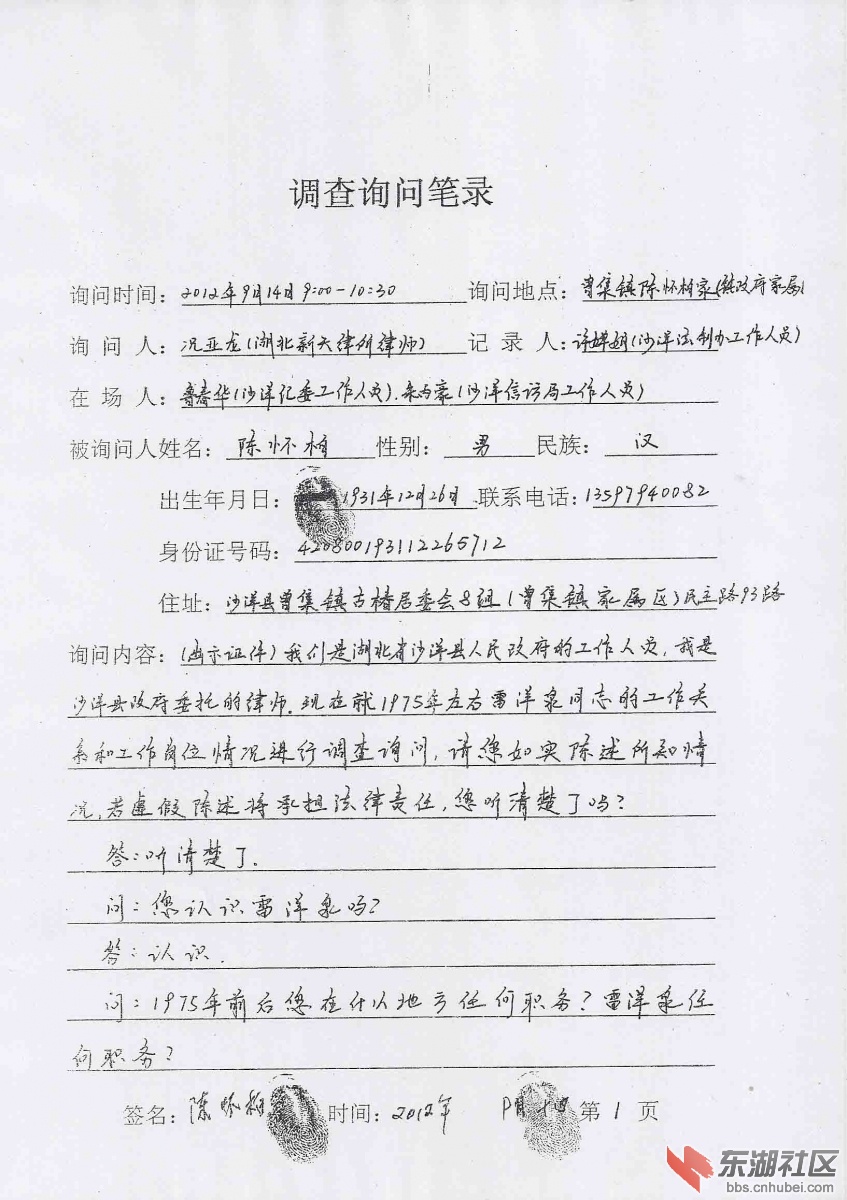 调查询问笔录
询问时间：2012年9月14日9:00-10:30 询问地点：曾集镇陈怀柏家(镇政府家属)
询问人：况亚龙(湖北新天律所律师) 记录人：许婵娟(沙洋法制办工作人员)
在场人：鲁春华(沙洋纪委工作人员).(沙洋信访局工作人员)
被询问人姓名：陈怀柏 性别：男 民族：汉
出生年月日：1931年12月26日 联系电话：13597940082
身份证号码：420800193112265712
住址：沙洋县曾集镇古椿居委会8组(曾集镇家属区)民主路93路
询问内容：(出示证件)我们是湖北省沙洋县人民政府的工作人员,我是
沙洋县政府委托的律师.现在就1975年左右雷洋泉同志的工作关
系和工作岗位情况进行调查询问,请您如实陈述所知情
况,若虚假陈述将承担法律责任,您听清楚了吗?
答:听清楚了.
问:您认识雷洋泉吗?
答:认识.
问:1975年前后您在什么地方任何职务?雷洋泉任
何职务?
签名：陈怀柏 时间：2012年 月 日 第1页
东湖社区
bbs.cnhubei.com